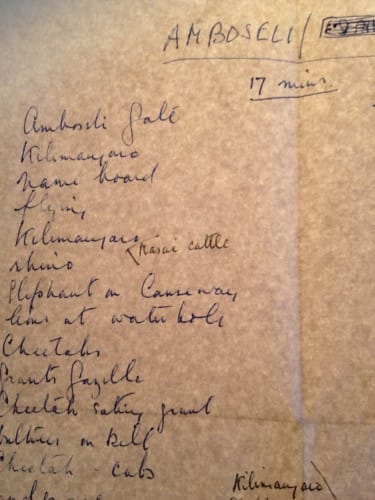 AMBOSELI/
17 mins.
Amboseli Gate
Kilimanjaro
name board
flying
Kilimanjaro
Masai cattle
rhino
Elephant on Causeway
lions at water hole
Cheetahs
Grants Gazelle
Cheetah eating grant
Vultures on kill
Cheetah - cubs
Kilimanjaro